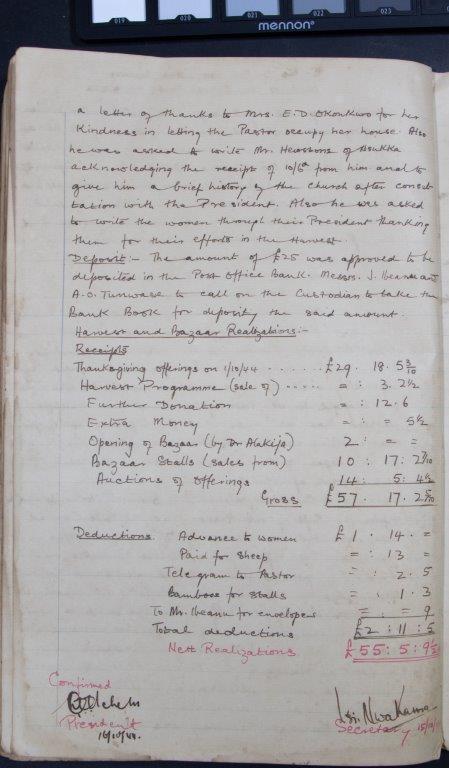 019 020 021 022 023
mennon®
a letter of thanks to Mrs. E.D. Okonkwo for her
kindness in letting the Pastor occupy her house. Also
he was asked to write Mr. of Nsukka
acknowledging the receipt of 10/6d from him and to
give him a brief history of the church after consul-
tation with the President. Also he was asked
to write the women through their President thanking
them for their efforts in the Harvest.
Deposit:- The amount of £25 was approved to be
deposited in the Post Office Bank. Messrs. J. Ibeanu and
A.O. Tunwase to call on the Custodian to take the
Bank Book for deposity the said amount.
Harvest and Bazaar Realizations:-
Receipts
Thanksgiving offerings on 1/10/44 ...... £29 . 18 . 5 3/10
Harvest Programme (sale of) ..... = : 3 . 2½
Further Donation = : 12 . 6
Extra Money = : = 5½
Opening of Bazaar (by Dr Alakija) 2 : = =
Bazaar Stalls (sales from) 10 : 17 : 2 7/10
Auctions of Offerings 14 : 5 : 4½
Gross £57 . 17 . 2
Deductions Advance to women £1 . 14 . =
Paid for sheep = : 13 =
Telegram to Pastor = : 2 . 5
Bamboos for stalls = . 1 . 3
To Mr. Ibeanu for envelopes = : = 9
Total deductions £2 : 11 : 5
Nett Realizations £55 : 5 : 9½
Confirmed
President Secretary
16/10/44. 15/10/